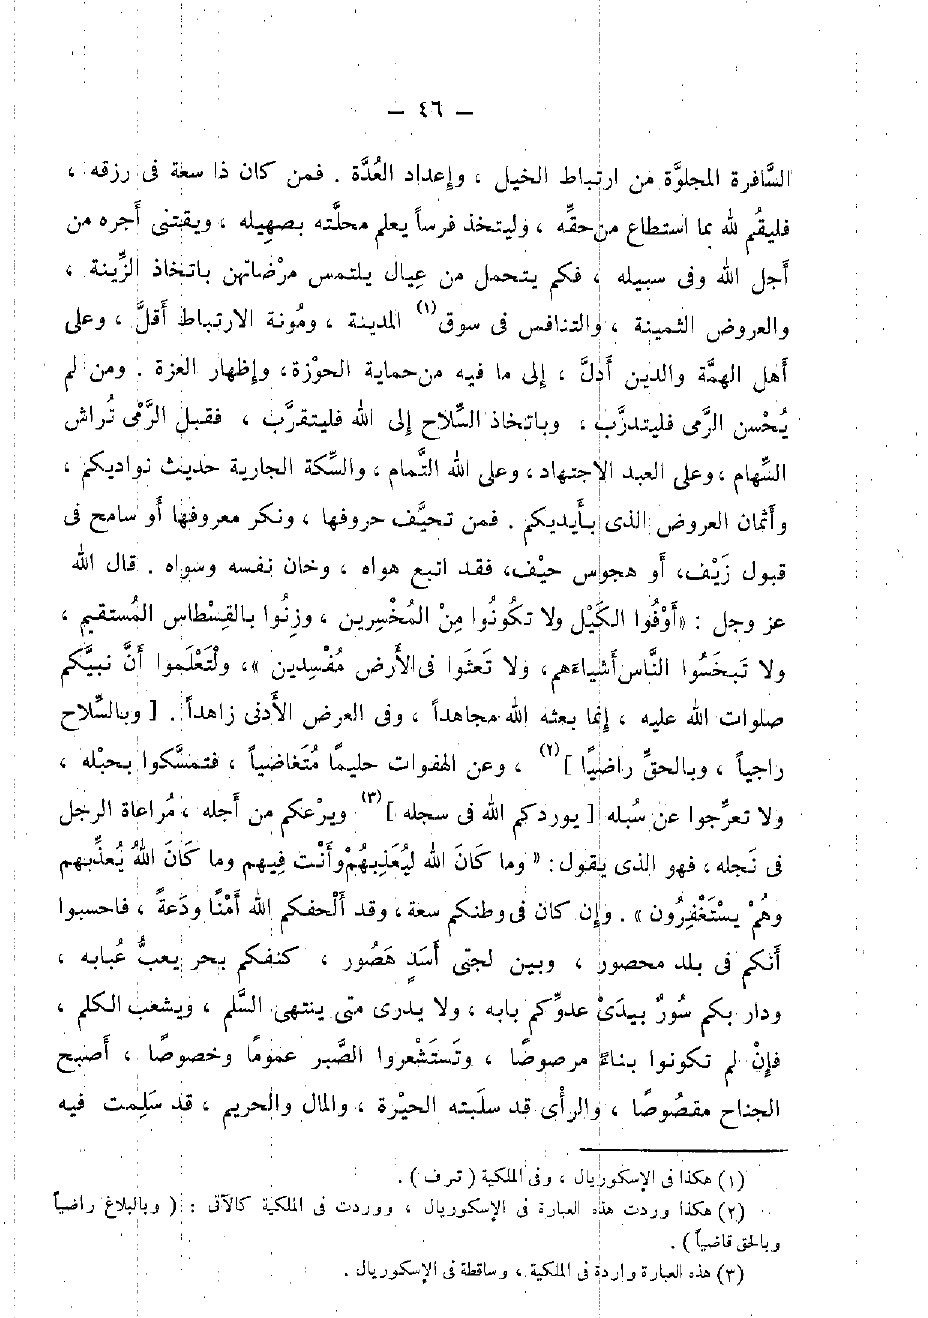 — ٤٦ —
السَّافرة المجلوَّة من ارتباط الخيل ، وإعداد العُدَّة . فمن كان ذا سعة فى رزقه ،
فليقُم لله بما استطاع من حقِّه ، وليتخذ فرساً يعلم محلَّته بصهيله ، ويقتنى أجره من
أجل الله وفى سبيله ، فكم يتحمل من عِيال يلتمس مرْضاتهن باتخاذ الزِّينة ،
والعروض الثمينة ، والتنافس فى سوق(١) المدينة ، ومُونة الارتباط أقلَّ ، وعلى
أهل الهمَّة والدين أدلَّ ، إلى ما فيه من حماية الحوْزة، وإظهار العزة . ومن لم
يُحْسن الرَّمى فليتدرَّب ، وباتخاذ السِّلاح إلى الله فليتقرَّب ، فقبل الرَّمى تُراش
السِّهام ، وعلى العبد الاجتهاد ، وعلى الله التَّمام ، والسِّكة الجارية حديث نواديكم ،
وأثمان العروض الذى بأيديكم . فمن تحيَّف حروفها ، ونكر معروفها أو سامح فى
قبول زَيْف، أو هجوس حيْف، فقد اتبع هواه ، وخان نفسه وسواه . قال الله
عز وجل : «أوْفُوا الكَيْل ولا تكُونُوا مِنْ المُخْسِرين ، وزِنُوا بالقِسْطاس المُستقيم ،
ولا تَبخَسُوا النَّاس أشياءهم، ولا تَعثَوا فى الأرض مفْسِدين »، ولْتَعْلموا أنَّ نبيَّكم
صلوات الله عليه ، إنما بعثه الله مجاهداً ، وفى العرض الأدنى زاهداً . [ وبالسِّلاح
راجياً ، وبالحقِّ راضيًا ](٢) ، وعن الهفوات حليمًا مُتَغاضياً ، فتمسَّكوا بحبْله ،
ولا تعرِّجوا عن سُبله [ يوردكم الله فى سجله ](٣) ويرْعكم من أجله ، مُراعاة الرجل
فى نَجله ، فهو الذى يقول : « وما كَانَ الله ليُعَذِبهُمْ وأنْت فِيهم وما كَانَ اللهُ يُعذِّبهم
وهُمْ يسْتَغْفِرُون » . وإن كان فى وطنكم سعة ، وقد ألْحفكم الله أمْنًا ودَعةً ، فاحسبوا
أنكم فى بلد محصور ، وبين لجتى أسَدٍ هَصُور ، كنفكم بحر يعبُّ عُبابه ،
ودار بكم سُورٌ بيدَىْ عدوِّكم بابه ، ولا يدرى متى ينتهى السَّلم ، ويشعب الكلم ،
فإنْ لم تكونوا بناءً مرصوصًا ، وتَستَشْعروا الصَّبر عمومًا وخصوصًا ، أصبح
الجناح مقصُوصًا ، والرأى قد سلبَته الحيْرة ، والمال والحريم ، قد سَلِمت فيه
(١) هكذا فى الإسكوريال ، وفى الملكية ( ترف ) .
(٢) هكذا وردت هذه العبارة فى الإسكوريال ، ووردت فى الملكية كالآتى : ( وبالبلاغ راضياً
وبالحق قاضياً ) .
(٣) هذه العبارة واردة فى الملكية ، وساقطة فى الإسكوريال .